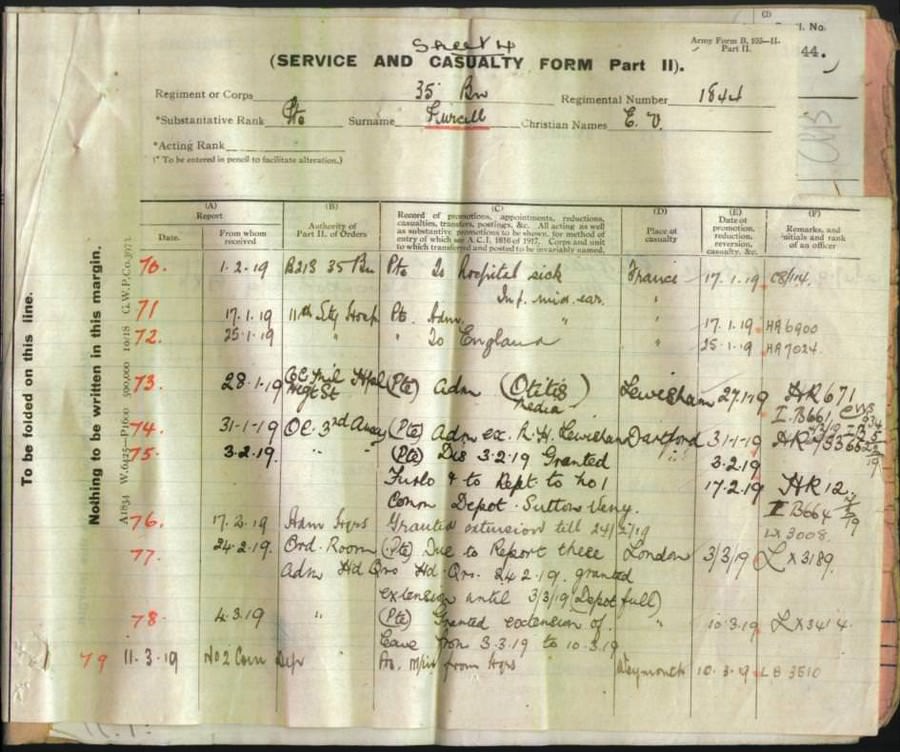 Sheet 4
Army Form B. 103—II.
Part II.
l. No.
44.
(SERVICE AND CASUALTY FORM Part II).
Regiment or Corps 35 Bn Regimental Number 1844
*Substantative Rank Pte Surname Purcell Christian Names E. V.
*Acting Rank
(* To be entered in pencil to facilitate alteration.)
To be folded on this line.
Nothing to be written in this margin.
(A) (B) (C) (D) (E) (F)
Report
Date. From whom received
Authority of Part II. of Orders
Record of promotions, appointments, reductions,
casualties, transfers, postings, &c. All acting as well
as substantive promotions to be shown, for method of
entry of which see A.C.I. 1816 of 1917. Corps and unit
to which transferred and posted to be invariably named.
Place of casualty
Date of promotion, reduction, reversion, casualty, &c.
Remarks, and initials and rank of an officer
70. 1.2.19 B213 35 Bn Pte To hospital sick France 17.1.19
Inf. mid. ear. "
71 17.1.19 11th Sty Hosp Pt. Adm. " " 17.1.19 HA6900
72. 25.1.19 " " To England " 25.1.19 HA7024
73. 28.1.19 OC Mil Hpl (Pte) Adm (Otitis Media) Lewisham 27.1.19 HR 671
I.B661
74. 31-1-19 OC. 3rd Aux (Pte) Adm ex. R.H. Lewisham Dartford 31-1-19
75. 3.2.19. " " (Pte) Dis 3.2.19 Granted " 3.2.19
Furlo & to Rept to No 1 17.2.19 HR 12
Comm Depot. Sutton Veny. I B664
76. 17.2.19 Adm Hqrs Granted extension till 24/2/19 LX 3008.
77. 24.2.19. Ord. Room (Pte) Due to Report there London 3/3/19 LX3189.
Adm Hd Qrs Hd. Qrs. 24.2.19. granted
extension until 3/3/19 (Depot full)
78 4.3.19 " (Pte) Granted extension of " 10.3.19 LX3414.
leave from 3.3.19 to 10.3.19
79 11.3.19 No 2 Com Dep from Hqrs Weymouth 10.3.19 LB 3510